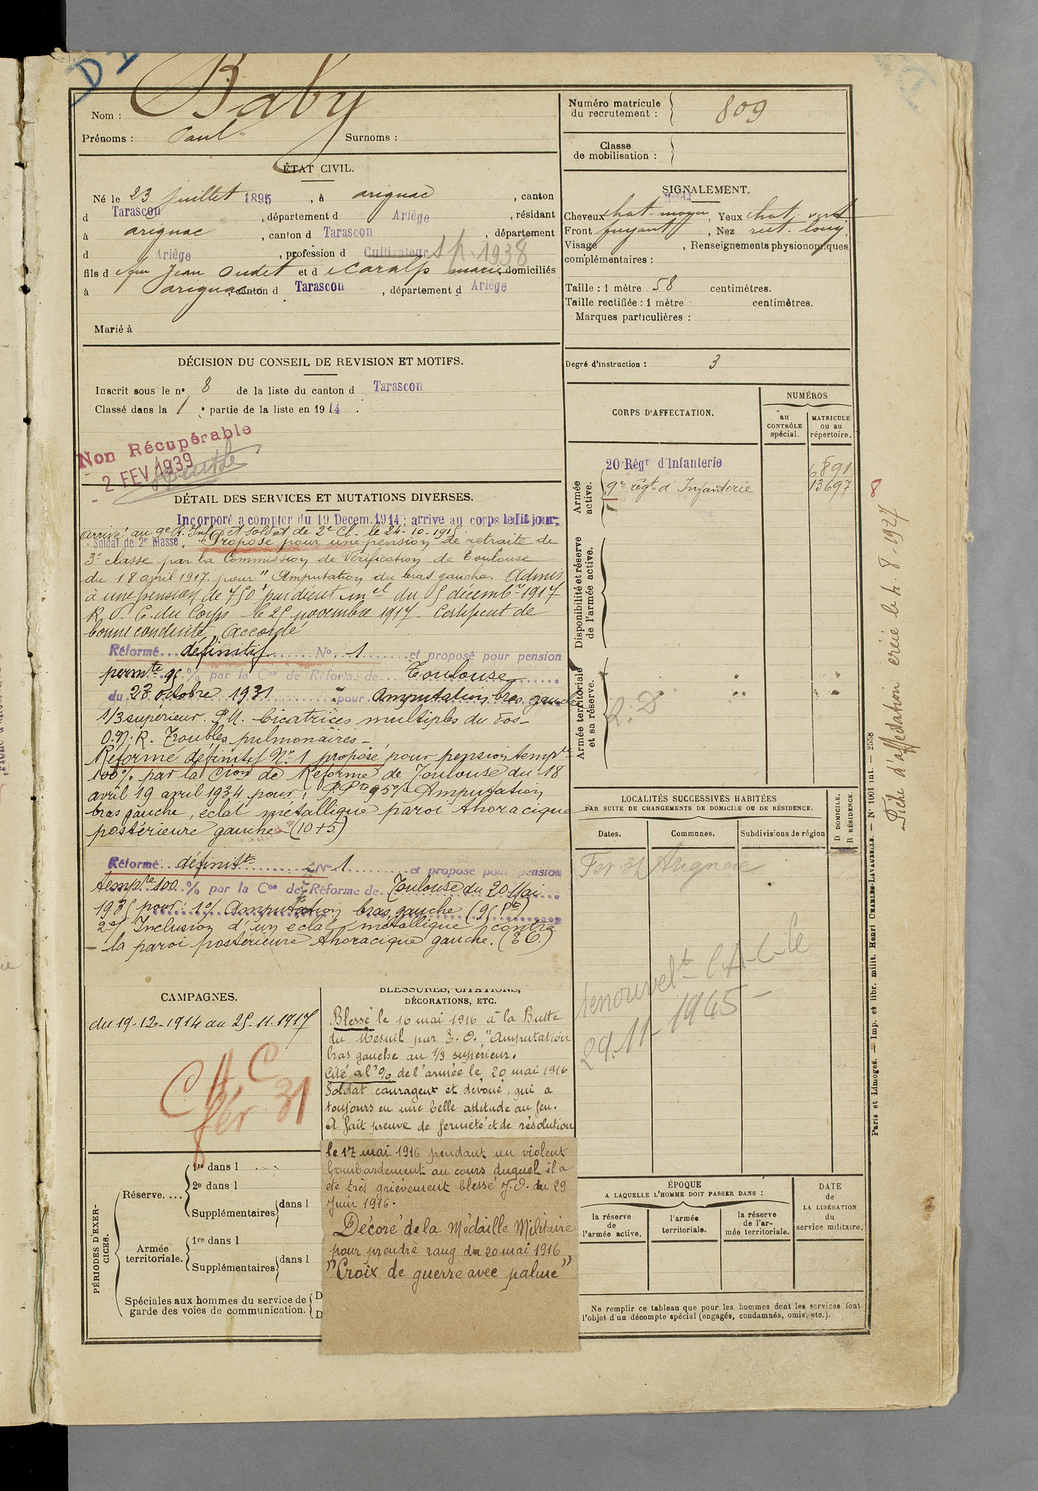 Nom : Baby
Prénoms : Paul Surnoms :
ÉTAT CIVIL.
Né le 23 juillet 1895, à arignac, canton
d Tarascon, département d Ariège, résidant
à arignac, canton d Tarascon, département
d Ariège, profession d Cultivateur s.p. 1938
fils d feu Jean Oudet et d Caralp marie, domiciliés
à arignac, canton d Tarascon, département d Ariège
Marié à
DÉCISION DU CONSEIL DE REVISION ET MOTIFS.
Inscrit sous le n° 8 de la liste du canton d Tarascon
Classé dans la 1e partie de la liste en 1914.
Non Récupérable
2 FEV 1939
DÉTAIL DES SERVICES ET MUTATIONS DIVERSES.
Incorporé à compter du 19 Décem. 1914; arrivé au corps ledit jour;
arrivé au 9e R. Inf. et soldat de 2e Cl. le 24-10-915
Soldat de 2e classe. Proposé pour une pension de retraite de
3e classe par la Commission de Vérification de Toulouse
du 18 avril 1917 pour "Amputation du bras gauche. Admis
à une pension de 750f par décret mel du 5 décembre 1917
R. D. C. du Corps le 25 novembre 1917. Certificat de
bonne conduite "Accordé
Réformé définitif N° 1 et proposé pour pension
permte 95 % par la Con de Réforme de Toulouse
du 28 octobre 1931 pour Amputation bras gauche
1/3 supérieur. P.M. Cicatrices multiples du dos-
O.N.R. Troubles pulmonaires-
Réforme définitif N° 1 proposé pour pension tempre
100% par la Cion de Réforme de Toulouse du 18
avril 19 avril 1934 pour: PPte 95% Amputation
bras gauche, éclat métallique paroi thoracique
postérieure gauche (10+5)
Réformé définitt N° 1 et proposé pour pension
tempre 100 % par la Con de Réforme de Toulouse du 20 Mai
1935 pour: 1°/ Amputation bras gauche (95 Pte)
2°/ Inclusion d'un éclat métallique contre
la paroi postérieure thoracique gauche.
CAMPAGNES.
du 19-12-1914 au 25-11-1917
C A C
fév 31
BLESSURES, CITATIONS,
DÉCORATIONS, ETC.
Blessé le 16 mai 1916 à la Butte
du Mesnil par E. O. "Amputation
bras gauche au 1/3 supérieur.
Cité à l'O/ de l'armée le 20 mai 1916
Soldat courageux et dévoué, qui a
toujours eu une belle attitude au feu.
A fait preuve de fermeté et de résolution
le 17 mai 1916 pendant un violent
bombardement au cours duquel il a
été très grièvement blessé J.O. du 29
Juin 1916.
Décoré de la Médaille Militaire
pour prendre rang du 20 mai 1916
"Croix de guerre avec palme"
PÉRIODES D'EXERCICES.
Réserve....
1re dans l
2e dans l
Supplémentaires dans l
Armée territoriale.
1re dans l
Supplémentaires dans l
Spéciales aux hommes du service de
garde des voies de communication.
D
D
Numéro matricule
du recrutement : 809
Classe
de mobilisation :
SIGNALEMENT.
Cheveux chat. moyen, Yeux chat. verd
Front fuyant, Nez rect. long,
Visage , Renseignements physionomiques
complémentaires :
Taille : 1 mètre 58 centimètres.
Taille rectifiée : 1 mètre centimètres.
Marques particulières :
Degré d'instruction : 3
CORPS D'AFFECTATION.
NUMÉROS
au CONTRÔLE spécial.
MATRICULE ou au répertoire.
Armée active.
20e Régt d'Infanterie 6891
9e régt d'Infanterie 13697
Disponibilité et réserve
de l'armée active.
Armée territoriale
et sa réserve.
R. D
LOCALITÉS SUCCESSIVES HABITÉES
PAR SUITE DE CHANGEMENTS DE DOMICILE OU DE RÉSIDENCE.
Dates. Communes. Subdivisions de région
D DOMICILE.
R RÉSIDENCE.
Fev 31 Arignac
29.11-1945
ÉPOQUE
A LAQUELLE L'HOMME DOIT PASSER DANS :
la réserve
de
l'armée active.
l'armée
territoriale.
la réserve
de l'ar-
mée territoriale.
DATE
de
LA LIBÉRATION
du
service militaire.
Ne remplir ce tableau que pour les hommes dont les services font
l'objet d'un décompte spécial (engagés, condamnés, omis, etc.).
Paris et Limoges. — Imp. et libr. milit. Henri CHARLES-LAVAUZELLE. — N° 1001 int. — 2558
8
Fiche d'affectation créée le h. 8-1927